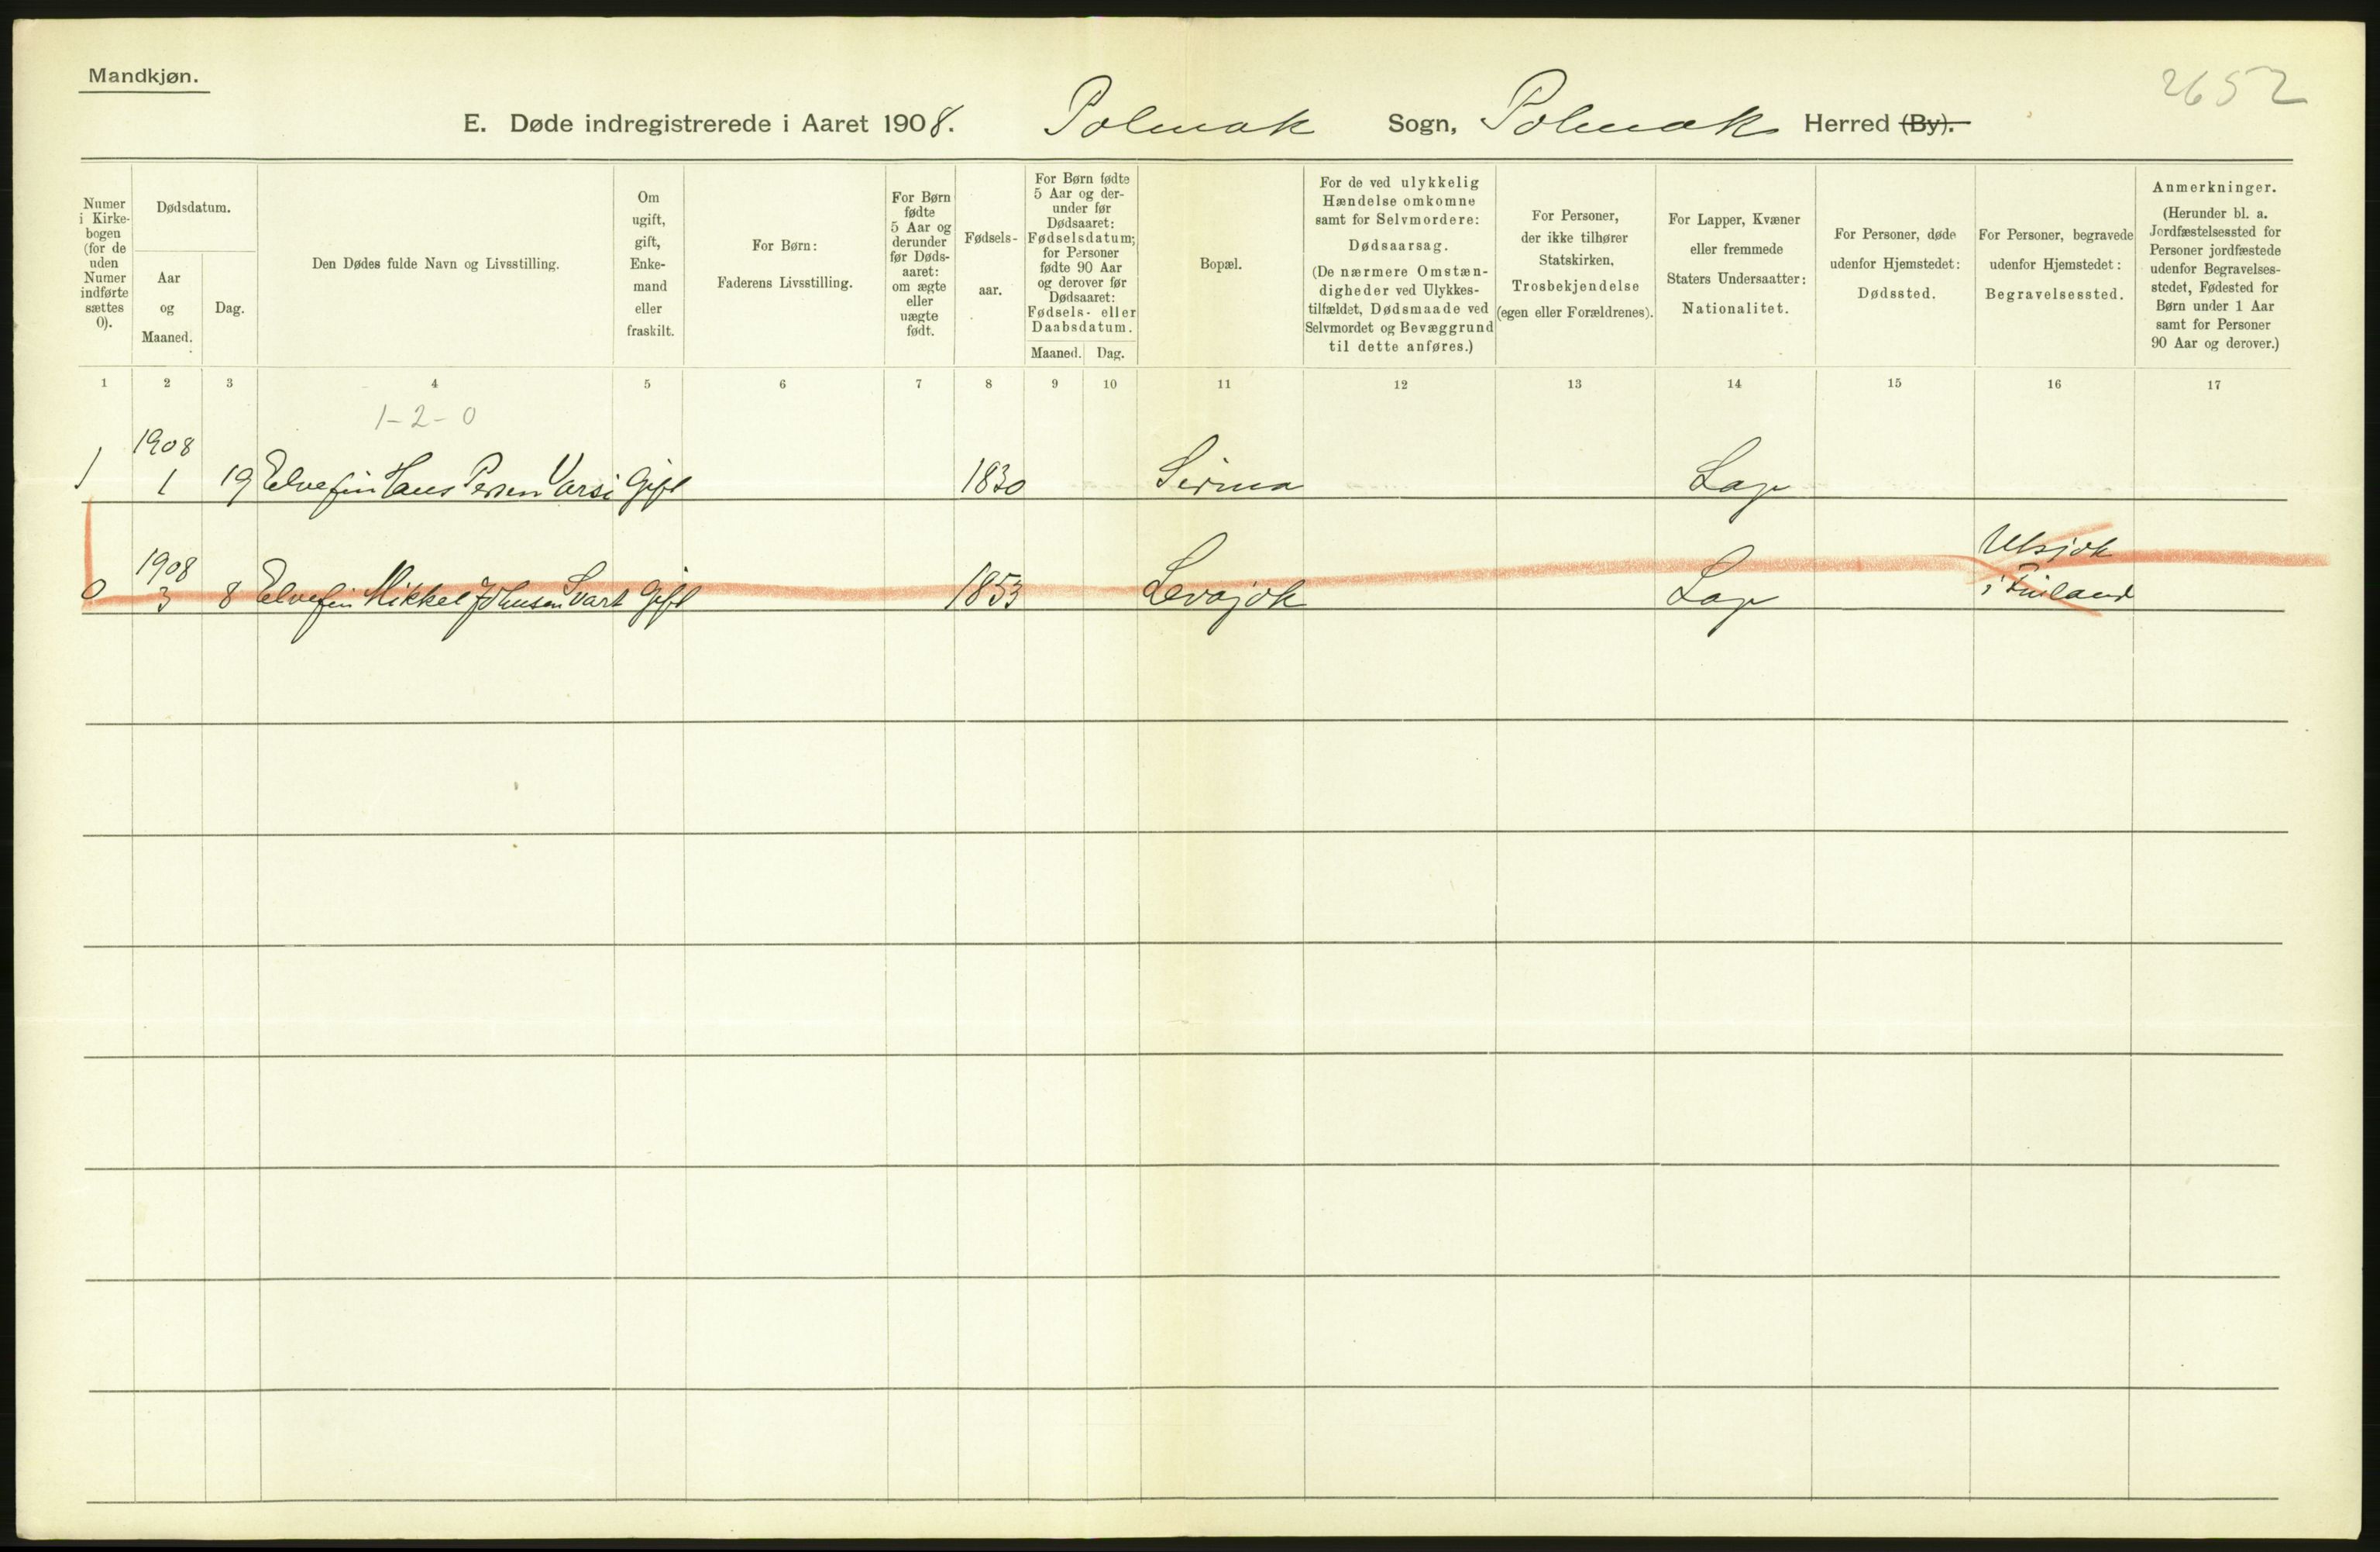 Mandkjøn.
2652
E. Døde indregistrerede i Aaret 1908. Polmak Sogn, Polmak Herred (By).
Numer
i Kirke-
bogen
(for de
uden
Numer
indførte
sættes
0).
Dødsdatum.
Aar
og
Maaned.
Dag.
Den Dødes fulde Navn og Livsstilling.
Om
ugift,
gift,
Enke-
mand
eller
fraskilt.
For Børn:
Faderens Livsstilling.
For Børn
fødte
5 Aar og
derunder
før Døds-
aaret:
om ægte
eller
uægte
født.
Fødsels-
aar.
For Børn fødte
5 Aar og der-
under før
Dødsaaret:
Fødselsdatum;
for Personer
fødte 90 Aar
og derover før
Dødsaaret:
Fødsels- eller
Daabsdatum.
Maaned. Dag.
Bopæl.
For de ved ulykkelig
Hændelse omkomne
samt for Selvmordere:
Dødsaarsag.
(De nærmere Omstæn-
digheder ved Ulykkes-
tilfældet, Dødsmaade ved
Selvmordet og Bevæggrund
til dette anføres.)
For Personer,
der ikke tilhører
Statskirken,
Trosbekjendelse
(egen eller Forældrenes).
For Lapper, Kvæner
eller fremmede
Staters Undersaatter:
Nationalitet.
For Personer, døde
udenfor Hjemstedet:
Dødssted.
For Personer, begravede
udenfor Hjemstedet:
Begravelsessted.
Anmerkninger.
(Herunder bl. a.
Jordfæstelsessted for
Personer jordfæstede
udenfor Begravelses-
stedet, Fødested for
Børn under 1 Aar
samt for Personer
90 Aar og derover.)
1 2 3 4 5 6 7 8 9 10 11 12 13 14 15 16 17
1-2-0
1908
1 1 19 Elvefin Hans Persen Varsi Gift 1830 Sirma Lap
1908 Utsjok
0 3 8 Elvefin Mikkel Johnsen Svart Gift 1853 Levajok Lap i Finland